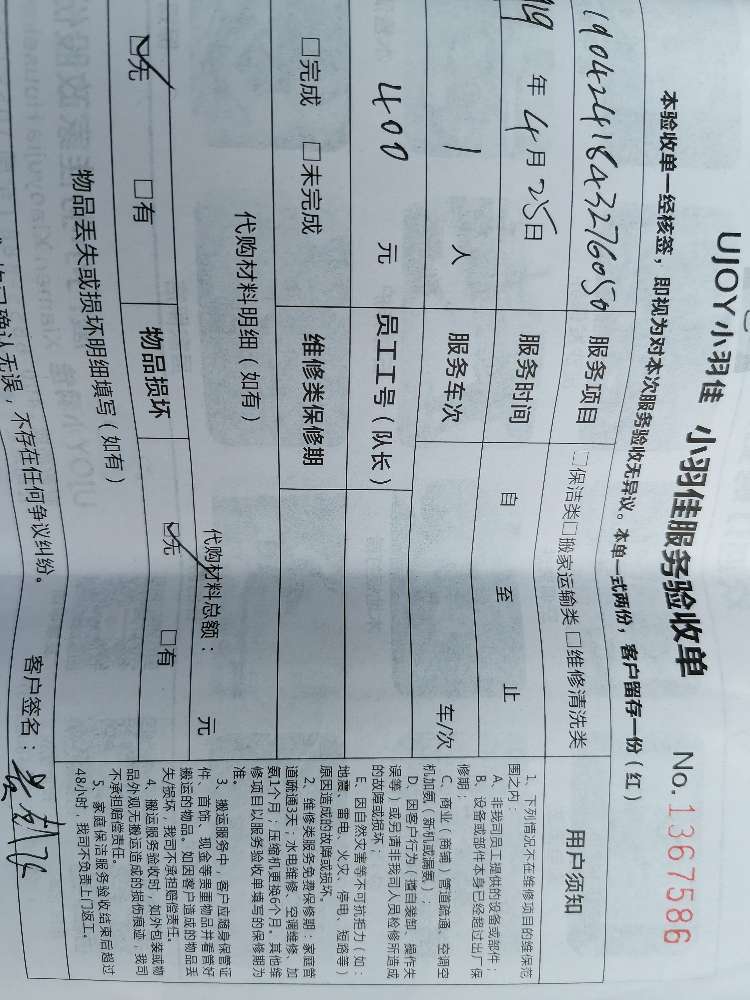 UJOY小羽佳 小羽佳服务验收单 No. 1367586
本验收单一经核签，即视为对本次服务验收无异议。本单一式两份，客户留存一份（红）
190424184327605 服务项目 □保洁类□搬家运输类 □维修清洗类
19 年 4 月 25 日 服务时间 自 至 止
1 人 服务车次 车/次
400 元 员工工号（队长）
□完成 □未完成 维修类保修期
代购材料明细（如有） 代购材料总额： 元
☑无 □有 物品损坏 ☑无 □有
物品丢失或损坏明细填写（如有）
确认无误，不存在任何争议纠纷。 客户签名：
用户须知
1、下列情况不在维修项目的维保范
围之内：
A、非我司员工提供的设备或部件；
B、设备或部件本身已经超过出厂保
修期；
C、商业（商铺）管道疏通、空调空
机加氨（新机或漏氨）；
D、因客户行为（擅自装卸、操作失
误等）或另请非我司人员检修所造成
的故障或损坏；
E、因自然灾害等不可抗拒力（如：
地震、雷电、火灾、停电、短路等）
原因造成的故障或损坏。
2、维修类服务免费保修期：家庭管
道疏通3天；水电维修、空调维修、加
氨1个月；压缩机更换6个月。其他维
修项目以服务验收单填写的保修期为
准。
3、搬运服务中，客户应随身保管证
件、首饰、现金等贵重物品并看管好
搬运的物品。如因客户造成的物品丢
失/损坏，我司不承担赔偿责任。
4、搬运服务验收时，如外包装或物
品外观无搬运造成的损伤痕迹，我司
不承担赔偿责任。
5、家庭保洁服务验收结束后超过
48小时，我司不负责上门返工。